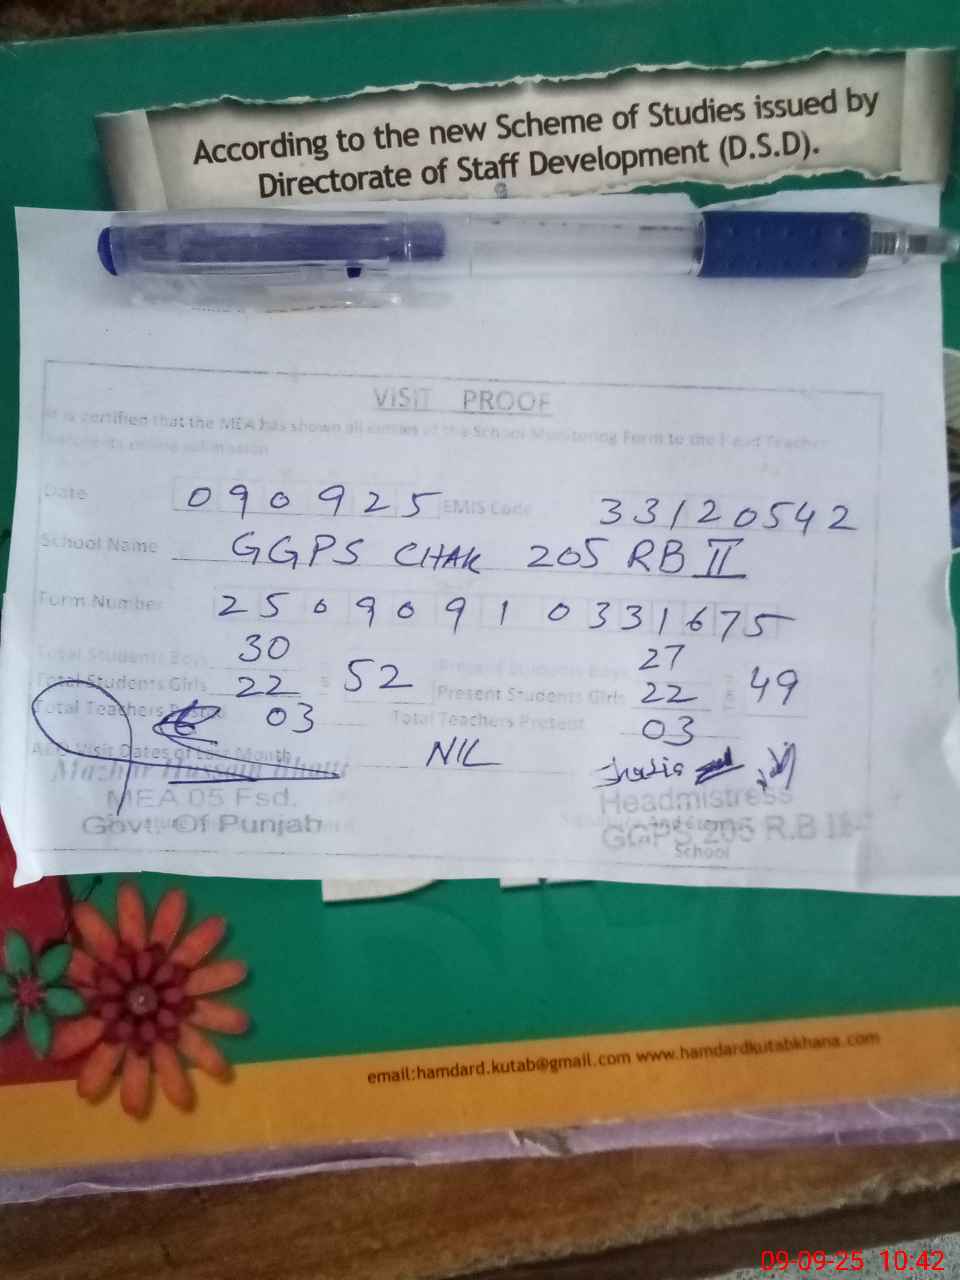 According to the new Scheme of Studies issued by
Directorate of Staff Development (D.S.D).
VISIT PROOF
It is certified that the MEA has shown all entries of the School Monitoring Form to the Head Teacher
Date 090925 EMIS Code 33120542
School Name GGPS CHAK 205 RB II
Form Number 25090910331675
Total Students Boys 30 Present Students Boys 27
Total Students Girls 22 = 52 Present Students Girls 22 = 49
Total Teachers Posted 03 Total Teachers Present 03
AEO Visit Dates of Last Month NIL
Mazhar Hussain Bhatti
MEA 05 Fsd.
Govt: Of Punjab
Headmistress
GGPS 205 R.B II
School
email:hamdard.kutab@gmail.com www.hamdardkutabkhana.com
09-09-25 10:42